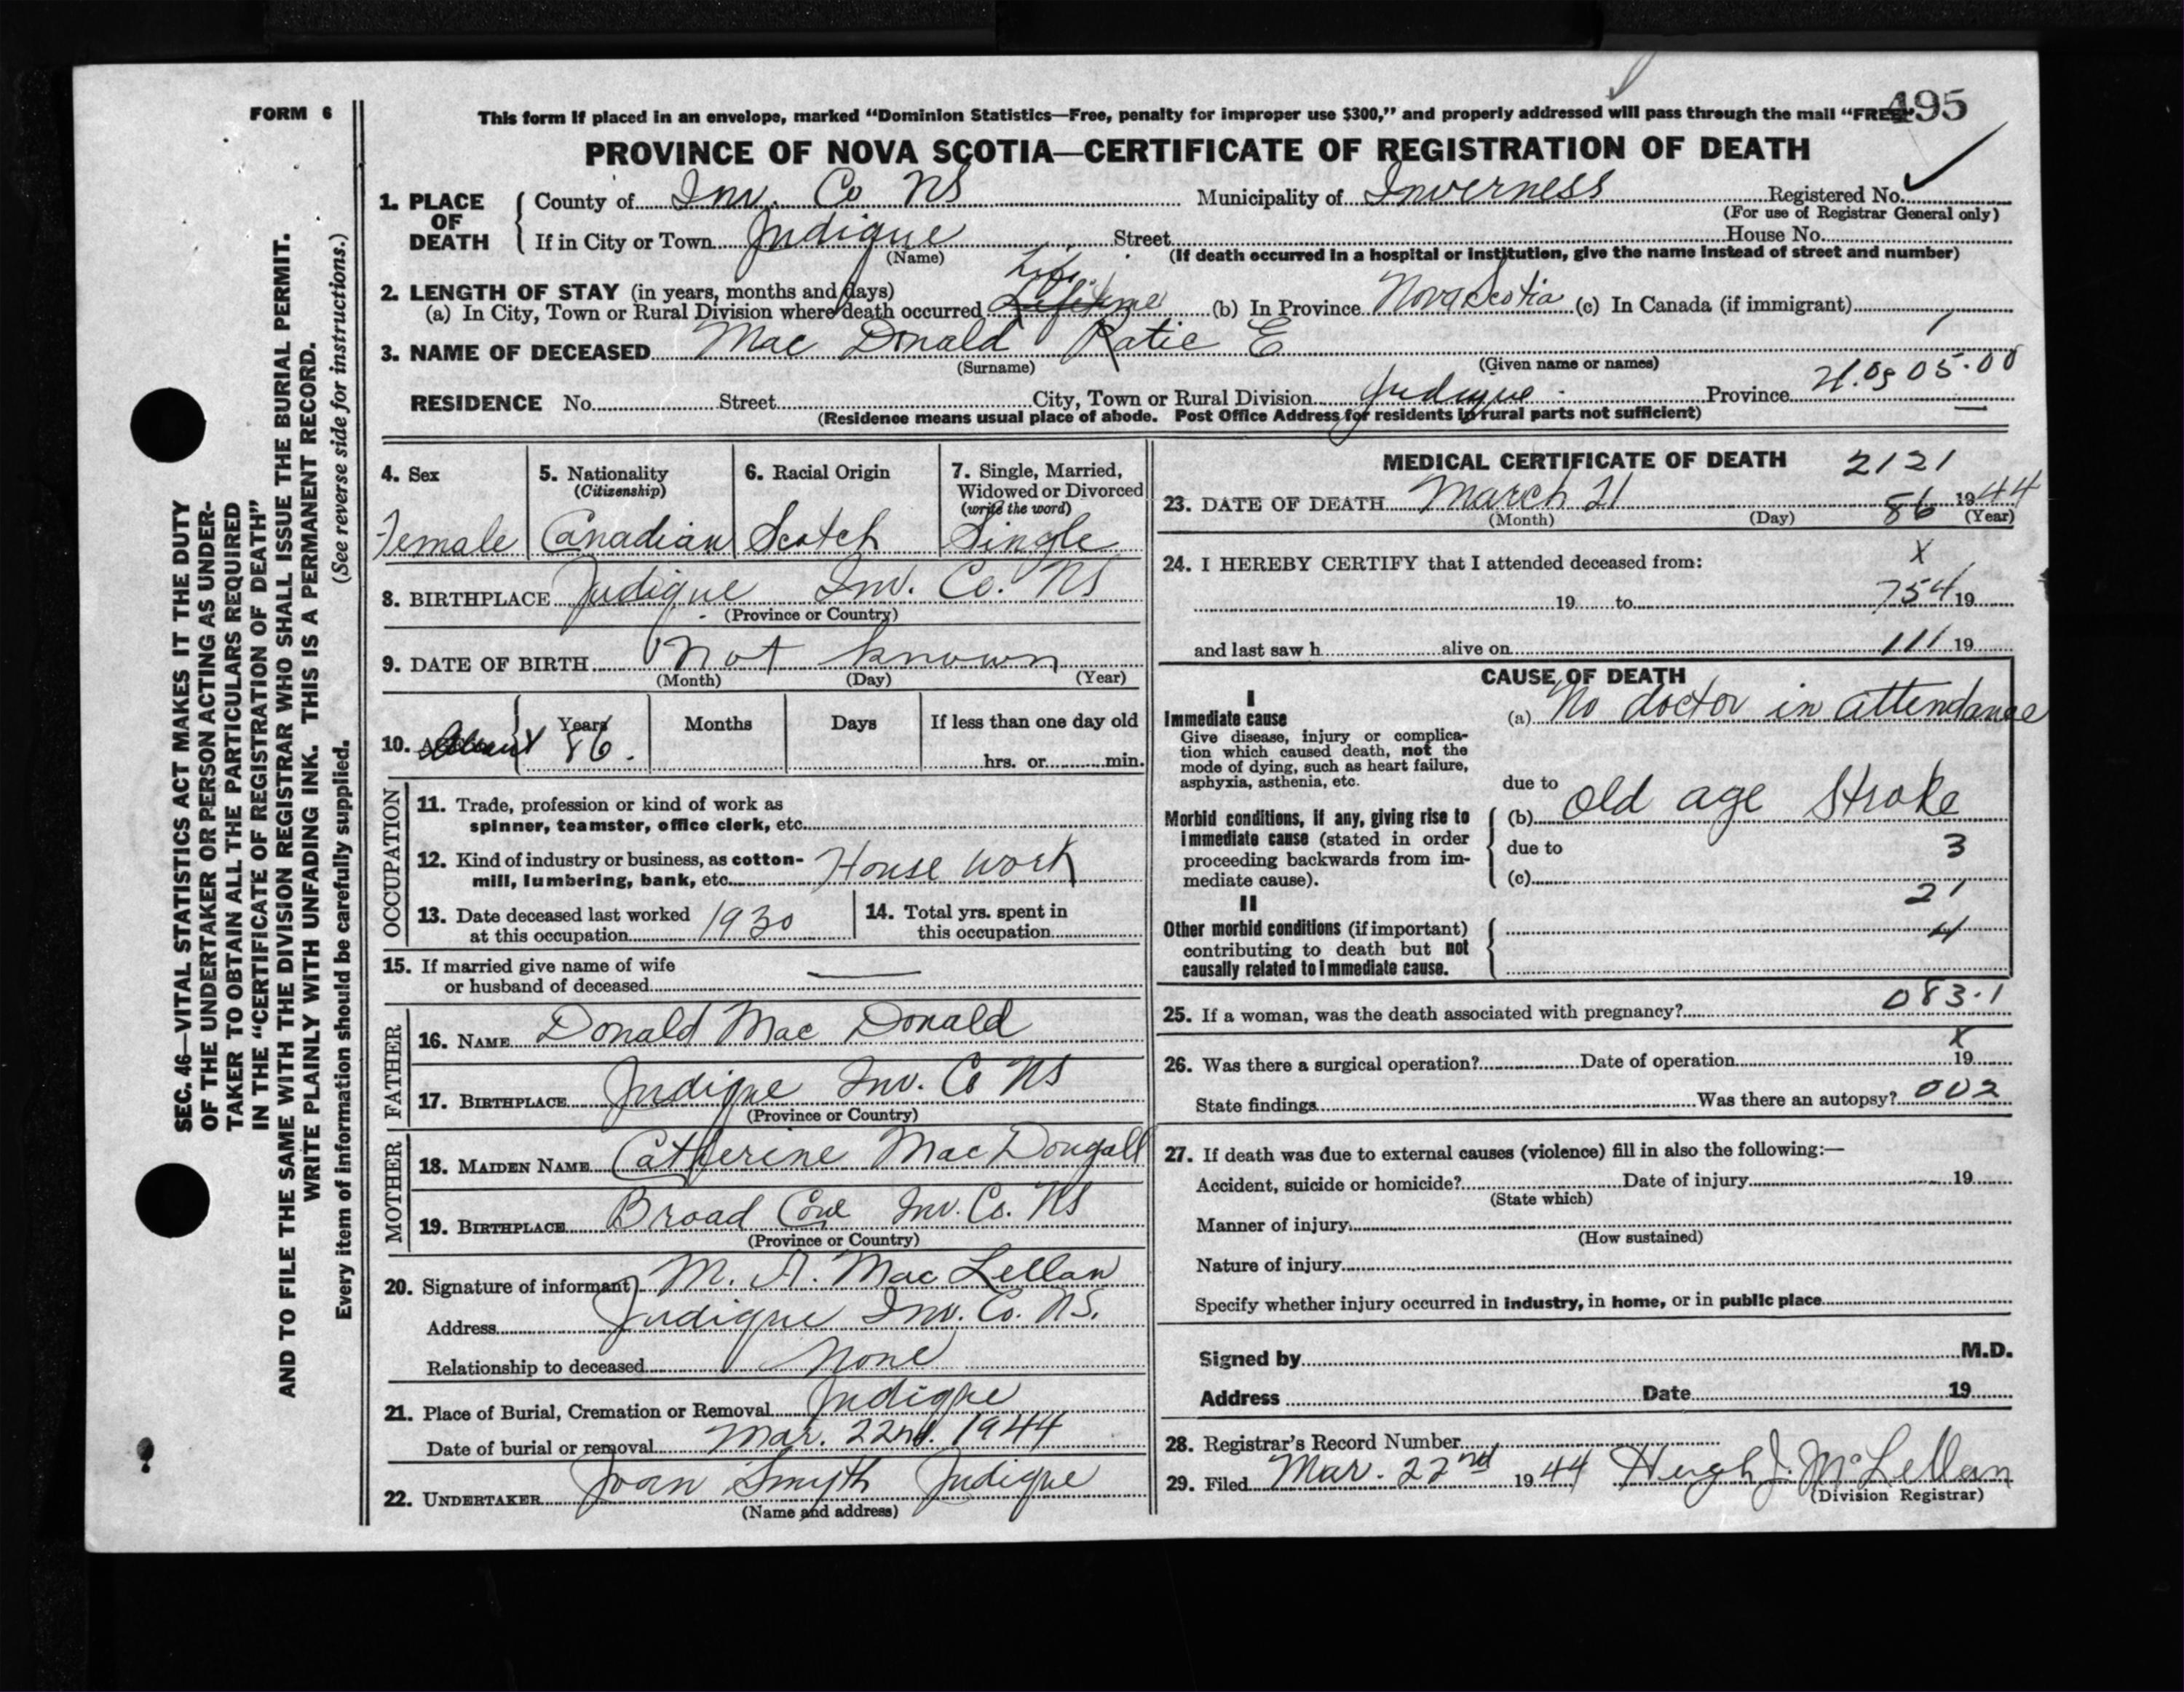 FORM 6
This form if placed in an envelope, marked “Dominion Statistics—Free, penalty for improper use $300,” and properly addressed will pass through the mail “FREE”
495
PROVINCE OF NOVA SCOTIA—CERTIFICATE OF REGISTRATION OF DEATH
1. PLACE OF DEATH
County of Inv. Co NS Municipality of Inverness Registered No.
(For use of Registrar General only)
If in City or Town Judique Street House No.
(Name) (If death occurred in a hospital or institution, give the name instead of street and number)
2. LENGTH OF STAY (in years, months and days)
Life
(a) In City, Town or Rural Division where death occurred Lifetime (b) In Province Nova Scotia (c) In Canada (if immigrant)
3. NAME OF DECEASED Mac Donald Katie E
(Surname) (Given name or names)
RESIDENCE No. Street City, Town or Rural Division Judique Province
(Residence means usual place of abode. Post Office Address for residents in rural parts not sufficient)
SEC. 46—VITAL STATISTICS ACT MAKES IT THE DUTY
OF THE UNDERTAKER OR PERSON ACTING AS UNDER-
TAKER TO OBTAIN ALL THE PARTICULARS REQUIRED
IN THE “CERTIFICATE OF REGISTRATION OF DEATH”
AND TO FILE THE SAME WITH THE DIVISION REGISTRAR WHO SHALL ISSUE THE BURIAL PERMIT.
WRITE PLAINLY WITH UNFADING INK. THIS IS A PERMANENT RECORD.
Every item of information should be carefully supplied. (See reverse side for instructions.)
4. Sex
Female
5. Nationality
(Citizenship)
Canadian
6. Racial Origin
Scotch
7. Single, Married,
Widowed or Divorced
(write the word)
Single
8. BIRTHPLACE Judique Inv. Co. NS
(Province or Country)
9. DATE OF BIRTH Not known
(Month) (Day) (Year)
10. About Years Months Days If less than one day old
86. hrs. or min.
OCCUPATION
11. Trade, profession or kind of work as
spinner, teamster, office clerk, etc.
12. Kind of industry or business, as cotton-
mill, lumbering, bank, etc. House work
13. Date deceased last worked
at this occupation 1930
14. Total yrs. spent in
this occupation
15. If married give name of wife
or husband of deceased
FATHER
16. NAME Donald Mac Donald
17. BIRTHPLACE Judique Inv. Co NS
(Province or Country)
MOTHER
18. MAIDEN NAME Catherine MacDougall
19. BIRTHPLACE Broad Cove Inv. Co. NS
(Province or Country)
20. Signature of informant M. A. Mac Lellan
Address Judique Inv. Co. NS.
Relationship to deceased None
21. Place of Burial, Cremation or Removal Judique
Date of burial or removal Mar. 22nd. 1944
22. UNDERTAKER Joan Smyth Judique
(Name and address)
MEDICAL CERTIFICATE OF DEATH 2121
23. DATE OF DEATH March 21 86 1944
(Month) (Day) (Year)
24. I HEREBY CERTIFY that I attended deceased from: X
19 to 754 19
and last saw h alive on 111 19
CAUSE OF DEATH
I
Immediate cause
Give disease, injury or complica-
tion which caused death, not the
mode of dying, such as heart failure,
asphyxia, asthenia, etc.
(a) No doctor in attendance
due to
Morbid conditions, if any, giving rise to
immediate cause (stated in order
proceeding backwards from im-
mediate cause).
(b) Old age Stroke
due to 3
(c)
21
II
Other morbid conditions (if important)
contributing to death but not
causally related to immediate cause.
4
25. If a woman, was the death associated with pregnancy? 083.1
X
26. Was there a surgical operation? Date of operation 19
State findings Was there an autopsy? 002
27. If death was due to external causes (violence) fill in also the following:—
Accident, suicide or homicide? Date of injury 19
(State which)
Manner of injury
(How sustained)
Nature of injury
Specify whether injury occurred in industry, in home, or in public place
Signed by M.D.
Address Date 19
28. Registrar's Record Number
29. Filed Mar. 22nd 1944 Hugh J. McLellan
(Division Registrar)